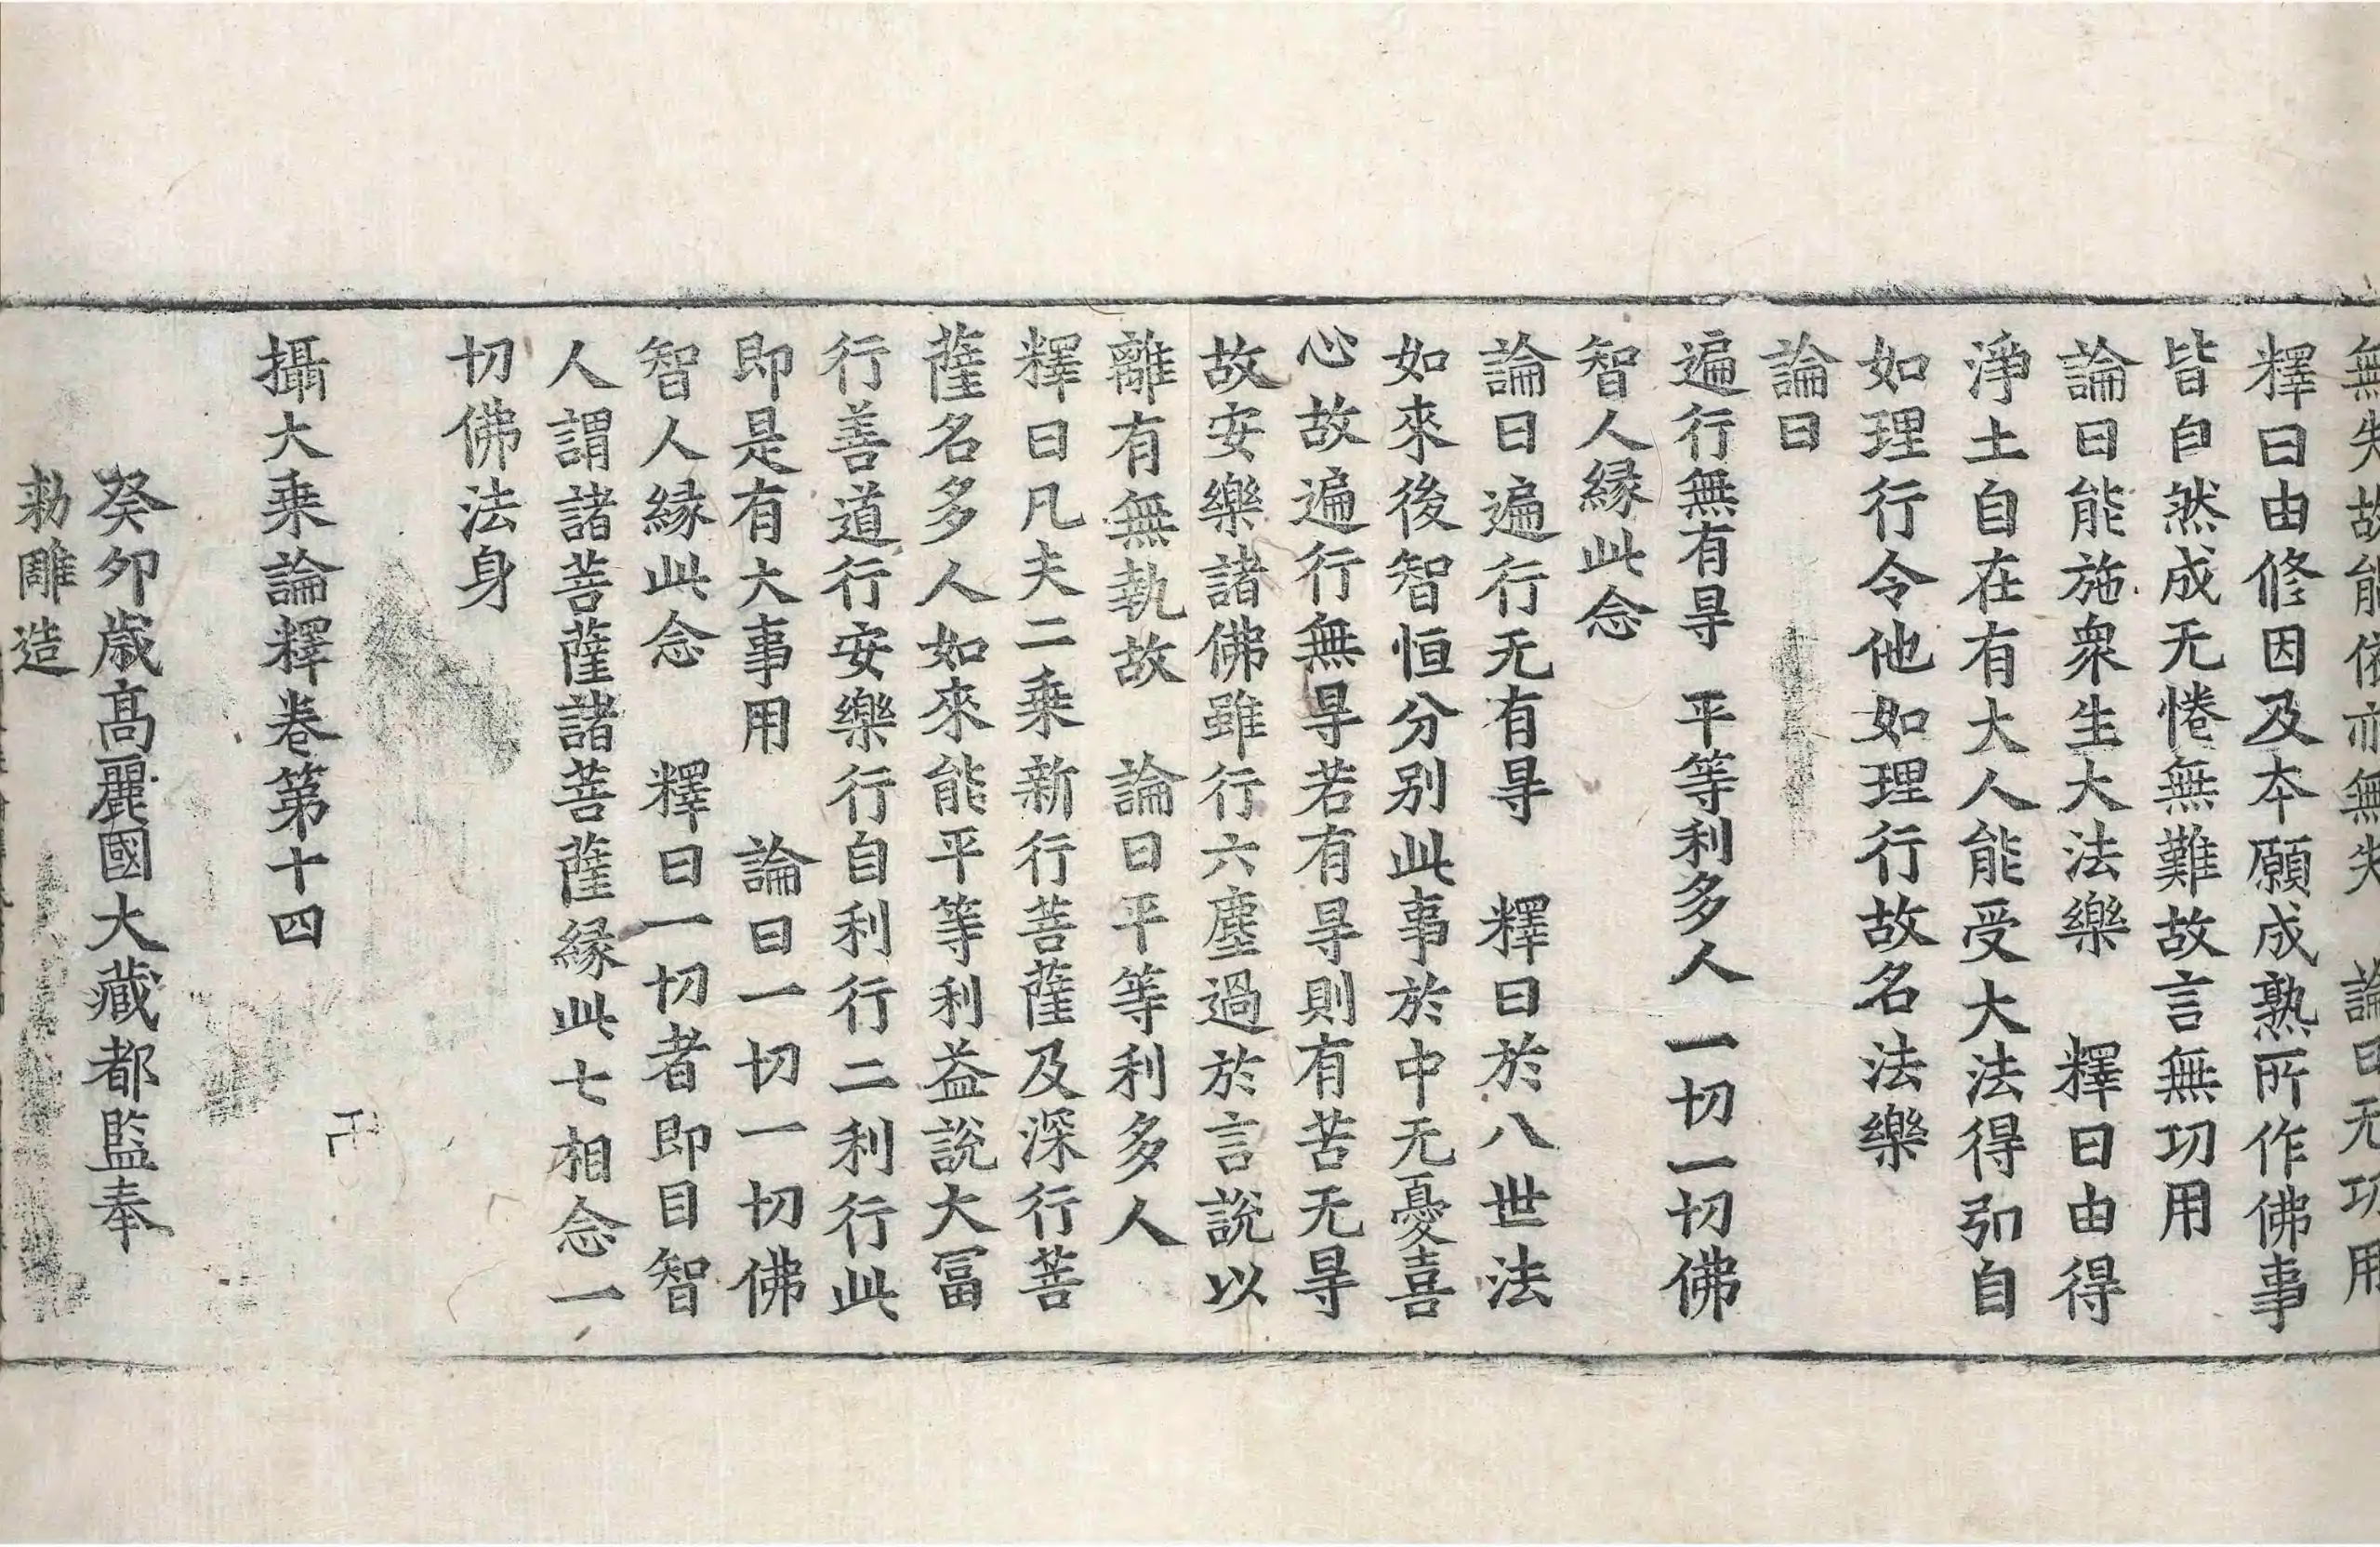 無失故能依亦無失　論曰无功用
釋曰由修因及本願成熟所作佛事
皆自然成无惓無難故言無功用
論曰能施衆生大法樂　釋曰由得
淨土自在有大人能受大法得引自
如理行令他如理行故名法樂
論曰
遍行無有㝵　平等利多人　一切一切佛
智人縁此念
論曰遍行无有㝵　釋曰於八世法
如來後智恒分別此事於中无憂喜
心故遍行無㝵若有㝵則有苦无㝵
故安樂諸佛雖行六塵過於言說以
離有無執故　論曰平等利多人
釋曰凡夫二乗新行菩薩及深行菩
薩名多人如來能平等利益說大冨
行善道行安樂行自利行二利行此
即是有大事用　論曰一切一切佛
智人縁此念　釋曰一切者即目智
人謂諸菩薩諸菩薩縁此七相念一
切佛法身
攝大乗論釋卷第十四
癸卯歲髙麗國大藏都監奉
勑雕造